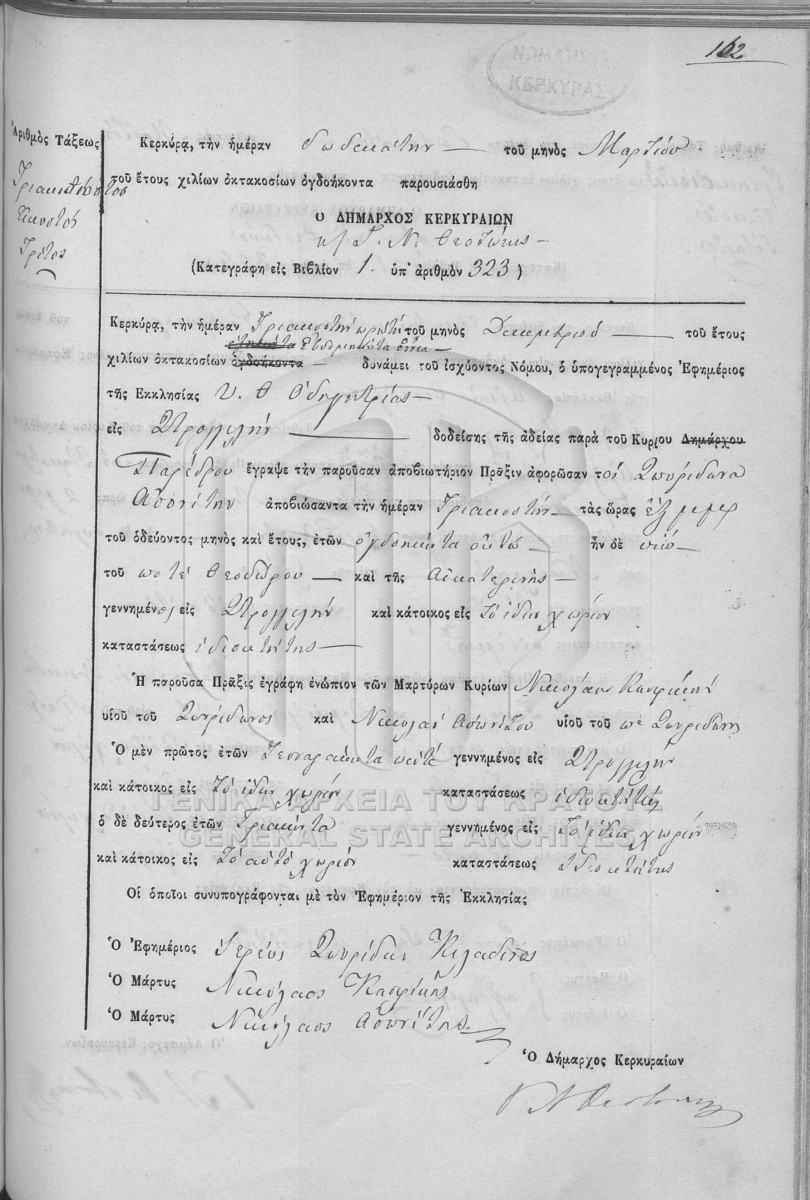 162
ΚΕΡΚΥΡΑΣ
Ἀριθμὸς Τάξεως
Τριακοσιοστὸς
Εἰκοστὸς
Τρίτος
Κερκύρᾳ, τὴν ἡμέραν δωδεκάτην τοῦ μηνὸς Μαρτίου
τοῦ ἔτους χιλίων ὀκτακοσίων ὀγδοήκοντα παρουσιάσθη
Ὁ ΔΗΜΑΡΧΟΣ ΚΕΡΚΥΡΑΙΩΝ
Γ. Ν. Θεοτόκης
(Κατεγράφη εἰς Βιβλίον 1. ὑπ' ἀριθμὸν 323)
Κερκύρᾳ, τὴν ἡμέραν Τριακοστὴν πρώτην τοῦ μηνὸς Δεκεμβρίου τοῦ ἔτους
ἑβδομηκόντα ἐννέα
χιλίων ὀκτακοσίων ὀγδοήκοντα δυνάμει τοῦ ἰσχύοντος Νόμου, ὁ ὑπογεγραμμένος Ἐφημέριος
τῆς Ἐκκλησίας Υ. Θ Ὁδηγητρίας
εἰς Στρογγυλὴν δοδείσης τῆς ἀδείας παρὰ τοῦ Κυρίου Δημάρχου
Παρέδρου ἔγραψε τὴν παροῦσαν ἀποβιωτήριον Πρᾶξιν ἀφορῶσαν τὸν Σπυρίδωνα
Ἀσπιώτην ἀποβιώσαντα τὴν ἡμέραν Τριακοστὴν τὰς ὥρας ἕξ
τοῦ ὁδεύοντος μηνὸς καὶ ἔτους, ἐτῶν ὀγδοήκοντα ὀκτὼ ἦν δὲ υἱὸς
τοῦ ποτὲ Θεοδώρου καὶ τῆς Αἰκατερίνης
γεννημένος εἰς Στρογγυλὴν καὶ κάτοικος εἰς τὸ ἴδιον χωρίον
καταστάσεως ἰδιοκτήτης
Ἡ παροῦσα Πρᾶξις ἐγράφη ἐνώπιον τῶν Μαρτύρων Κυρίων Νικολάου Κασφίκη
υἱοῦ τοῦ Σπυρίδωνος καὶ Νικολάου Ἀσπιώτου υἱοῦ τοῦ πὲ Σπυρίδωνος
Ὁ μὲν πρῶτος ἐτῶν Τεσσαράκοντα πέντε γεννημένος εἰς Στρογγυλὴν
καὶ κάτοικος εἰς Τὸ ἴδιον χωρίον καταστάσεως ἰδιοκτήτης
ΓΕΝΙΚΑ ΑΡΧΕΙΑ ΤΟΥ ΚΡΑΤΟΥΣ
ὁ δὲ δεύτερος ἐτῶν Τριακόντα γεννημένος εἰς Τὸ ἴδιον χωρίον
GENERAL STATE ARCHIVES
καὶ κάτοικος εἰς τὸ αὐτὸ χωρίον καταστάσεως ἰδιοκτήτης
Οἱ ὁποῖοι συνυπογράφονται μὲ τὸν Ἐφημέριον τῆς Ἐκκλησίας
Ὁ Ἐφημέριος Ἱερεὺς Σπυρίδων
Ὁ Μάρτυς Νικόλαος Κασφίκης
Ὁ Μάρτυς Νικόλαος Ἀσπιώτης
Ὁ Δήμαρχος Κερκυραίων
Γ Ν Θεοτόκης